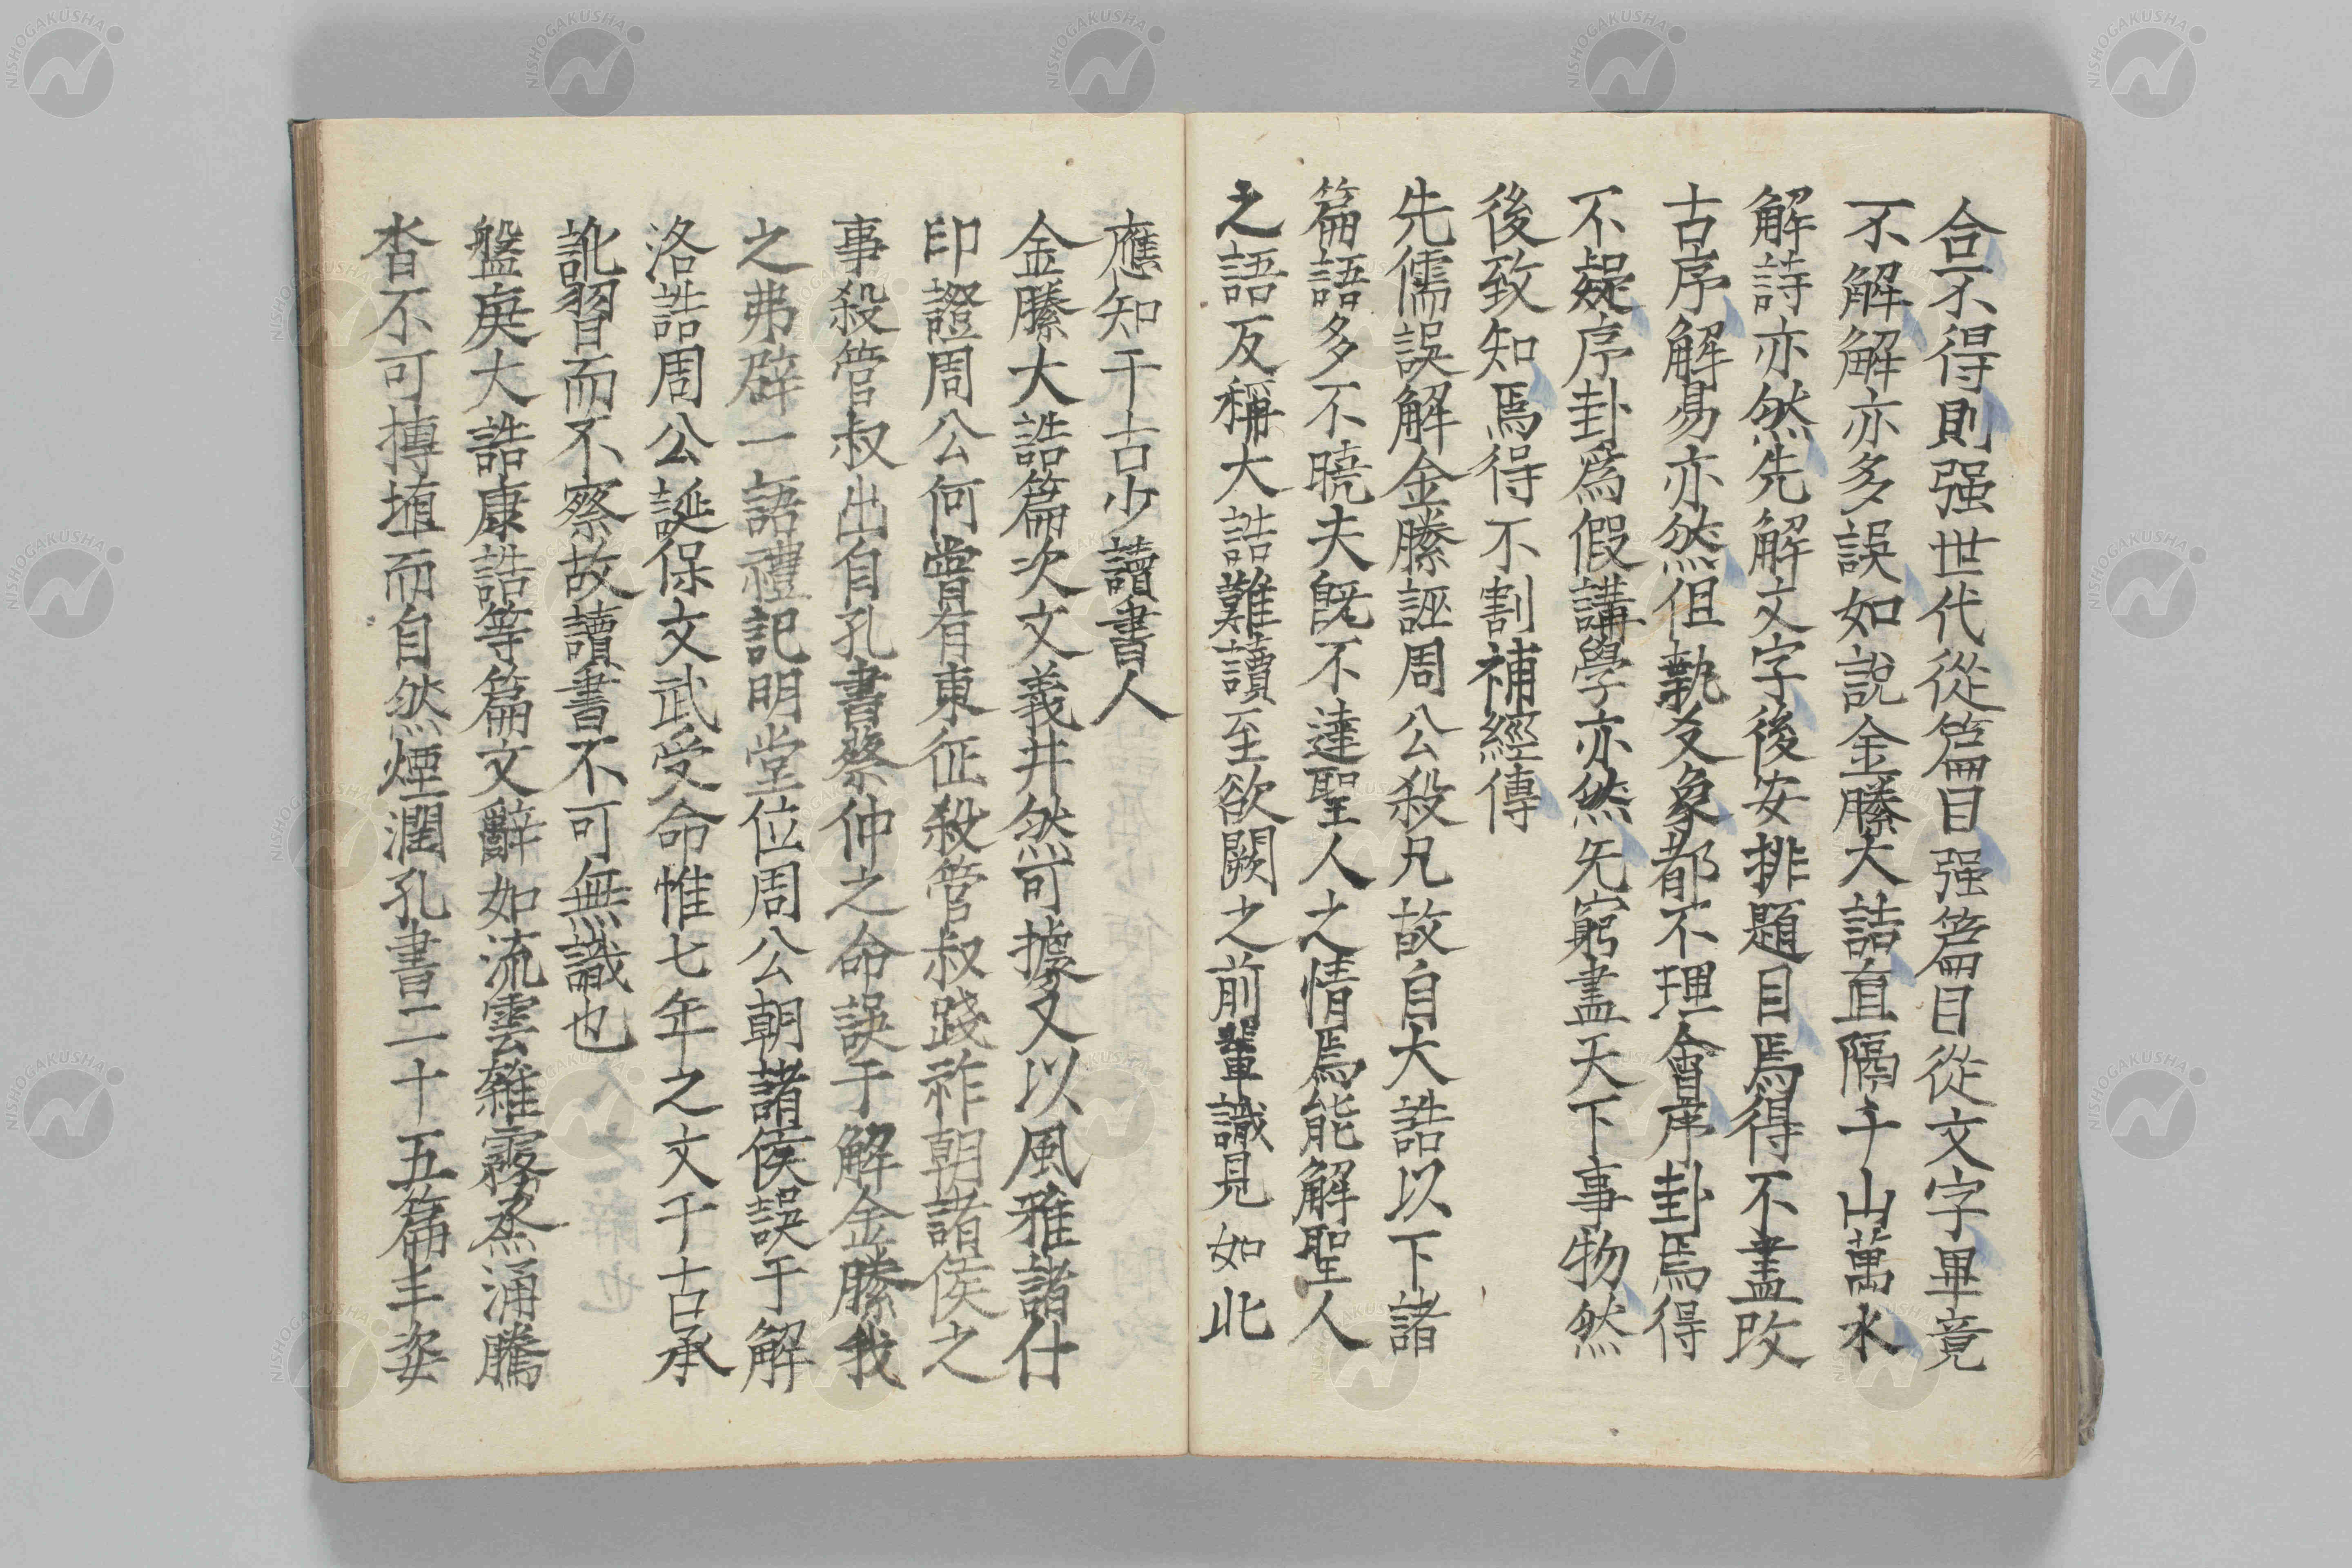 合不得則强世代從篇目强篇目從文字畢竟
不解解亦多誤如說金縢大誥直隔千山萬水
解詩亦然先解文字後安排題目焉得不盡改
古序解易亦然但執爻象都不理會序卦焉得
不疑序卦爲假講學亦然先窮盡天下事物然
後致知焉得不割補經傳
先儒誤解金縢誣周公殺兄故自大誥以下諸
篇語多不曉夫旣不達聖人之情焉能解聖人
之語反稱大誥難讀至欲闕之前輩識見如此
應知千古少讀書人
金縢大誥篇次文義井然可據又以風雅諸什
印證周公何嘗有東征殺管叔踐祚朝諸侯之
事殺管叔出自孔書蔡仲之命誤于解金縢我
之弗辟一語禮記明堂位周公朝諸侯誤于解
洛誥周公誕保文武受命惟七年之文千古承
訛習而不察故讀書不可無識也
盤庚大誥康誥等篇文辭如流雲雜霧烝涌騰
沓不可摶埴而自然煙潤孔書二十五篇丰姿
NISHOGAKUSHA